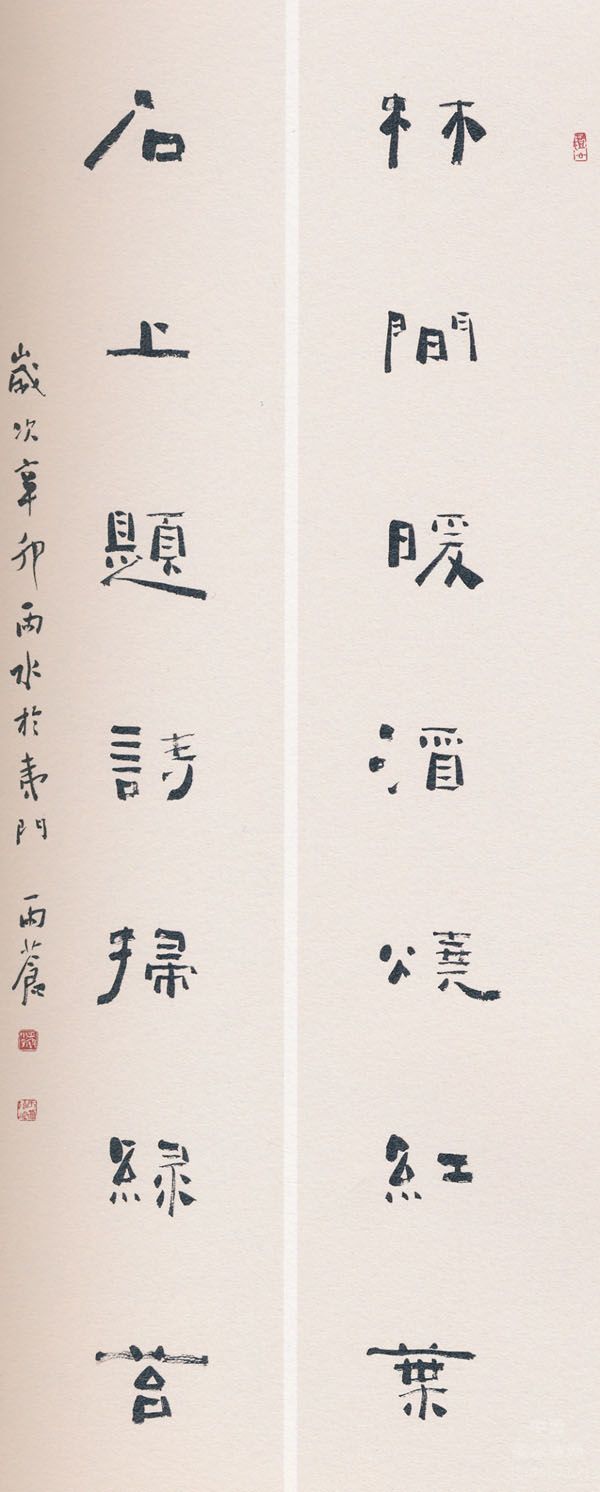 林間暖酒燒紅葉
石上題詩掃綠苔
歲次辛卯雨水於夷門 雨蒼